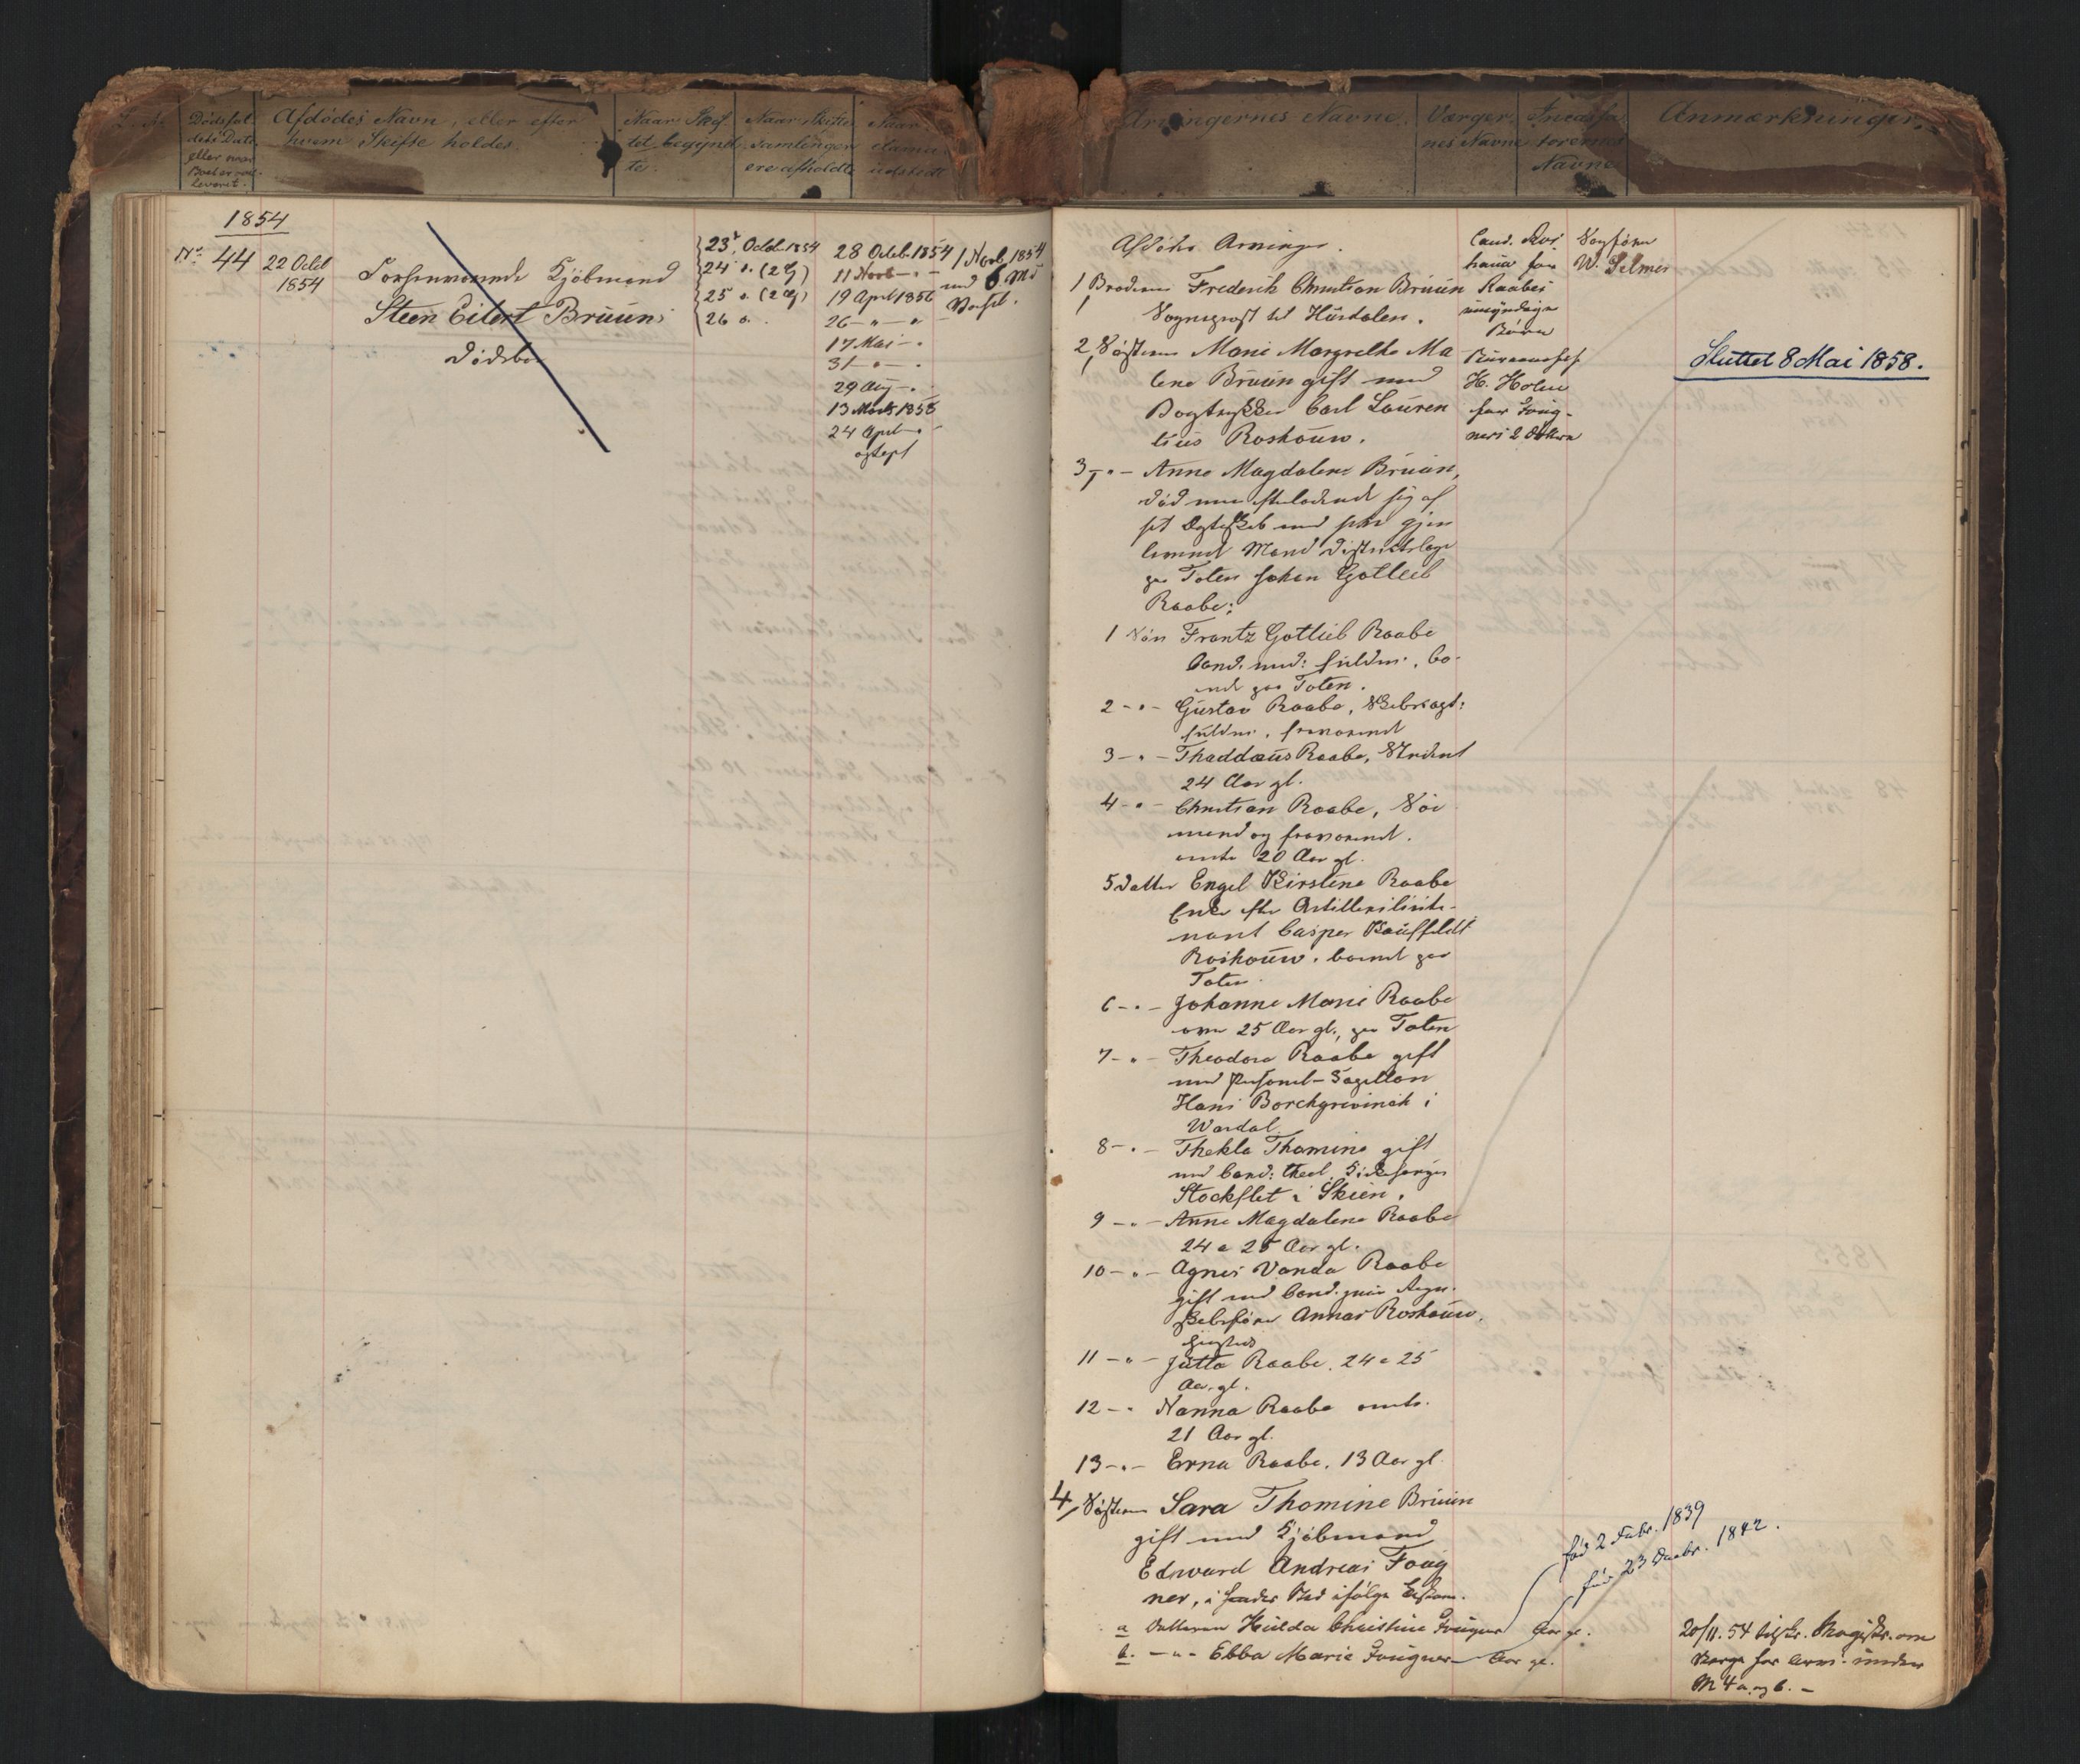 Dødsfal
dets Dato
eller naar
Boet er
leveret.
Afdødes Navn, eller efter
hvem Skifte holdes.
Naar Skif
tet begynd
te.
Naar Skifte
samlinger
ere afholdte
Naar
udstedt
Arvingernes Navne.
Værger
nes Navne
Navne
Anmærkninger.
1854
No 44
22 Octbr
1854
Forhenværende Kjöbmand
Steen Eilert Bruuns
Dødsbo
23de Octbr 1854
24 " (2 G)
25 " (2 G)
26 "
28 Octob. 1854
11 Novb - " -
19 April 1856
26 - " - "
17 Mai - "
31 - " - "
29 Aug - "
13 Marts 1858
24 April - "
1 Novb. 1854
med 6 Md
Varsel.
Afdødes Arvinger.
1 Broderen Frederik Christian Bruun
Sogneprest til Hurdalen.
2, Søsteren Marie Margrethe Ma
lene Bruun gift med
Bogtrykker Carl Lauren
tius Roshauw.
3, - " - Anne Magdalene Bruun,
død men efterladende sig af
sit Ægteskab med sin gjen
levende Mand Districtslæge
paa Toten Johan Gottlieb
Raabe:
1 Søn Frantz Gottlieb Raabe
Cand. med: fuldm., bo-
ende paa Toten.
2 - " - Gustav Raabe,
fuldm., fraværende
3 - " - Thaddæus Raabe, Student
24 Aar gl.
4 - " - Christian Raabe, Sø
mand og fraværende.
omtr. 20 Aar gl.
5 Datter Engel Kirstine Raabe
Enke efter Artillerilieute-
nant Casper Kauffeldt
Roshauw, boende paa
Toten.
6 - " - Johanne Marie Raabe
over 25 Aar gl., paa Toten
7 - " - Theodora Raabe gift
med Personel-Capellan
Hans Borchgrevinck i
Wardal.
8 - " - Thekla Thomine gift
med Cand: theol.
Stockflet i Skien.
9 - " - Anne Magdalene Raabe
24 a 25 Aar gl.
10 - " - Agnes Vanda Raabe
gift med Cand. juris Regn-
skabsfører Annar Roshauw,
11 - " - Jutta Raabe. 24 a 25
Aar gl.
12 - " Nanna Raabe omtr.
21 Aar gl.
13 - " - Erna Raabe, 13 Aar gl.
4, Søsteren Sara Thomine Bruun
gift med Kjöbmand
Edward Andreas Foug
ner, i
a Datteren Hulda Christine Fougner Aar gl.
b. - " - Ebba Marie Fougner Aar gl.
Cand. Mor.
for
Raabes
umyndige
Børn
Bureauchef
H. Holm
for Foug-
ners 2 Døttre
Sagfører
W. Selmer
Sluttet 8 Mai 1858.
fød 2 Febr. 1839
fød 23 Decbr. 1842.
20/11. 54 tilskr. Magistr. om
Værge for Arv. under
No 4 a. og b. -